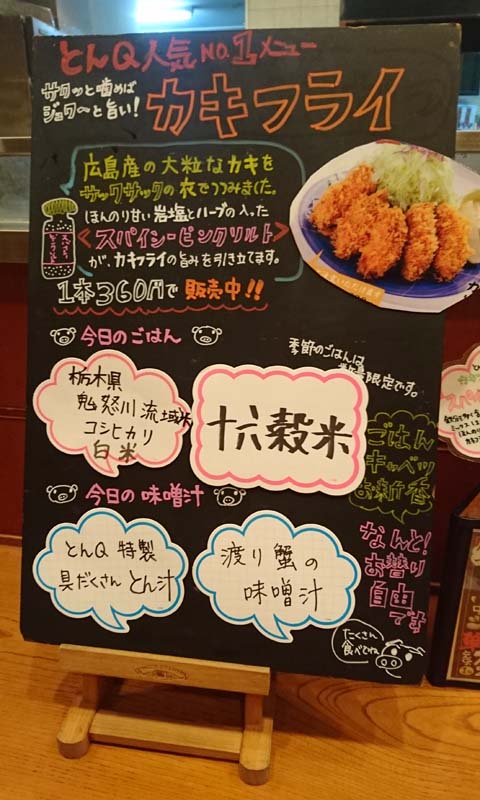 とんQ人気NO.1メニュー
サクッと噛めば
ジュワ〜と旨い!
カキフライ
広島産の大粒なカキを
サックサックの衣でつつみました。
ほんのり甘い岩塩とハーブの入った
<スパイシーピンクソルト>
が、カキフライの旨みを引き立てます。
1本360円で 販売中!!
今日のごはん
季節のごはんは
数量限定です。
栃木県
鬼怒川流域米
コシヒカリ
白米
十六穀米
ごはん
キャベツ
お新香
なんと!
お替り
自由
です
今日の味噌汁
とんQ 特製
具だくさん とん汁
渡り蟹の
味噌汁
たくさん
食べてね